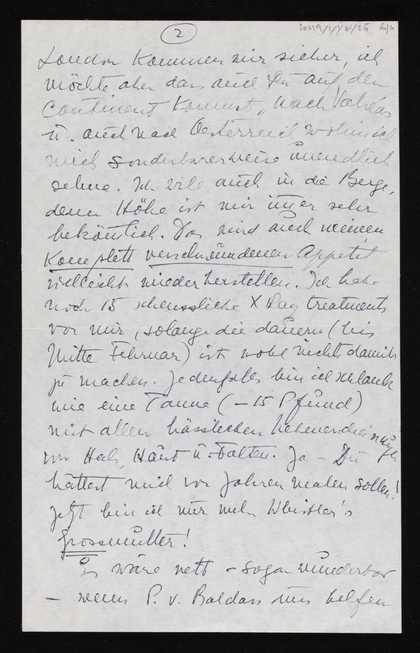 2
London kommen wir sicher, ich
möchte aber dass auch Du auf den
Continent kommst, nach
u. auch nach Oesterreich wohin ich
mich sonderbarerweise unendlich
sehne. Ich will auch in die Berge,
denn Höhe ist mir immer sehr
bekömlich. Das wird auch meinen
komplett verschwundenen Appetit
vielleicht wiederherstellen. Ich habe
noch 15 scheussliche X Ray treatments
vor mir, solange die dauern (bis
Mitte Februar) ist wohl nichts damit
zu machen. Jedenfalls bin ich schlank
wie eine Tanne (– 15 Pfund)
mit allen hässlichen Nebenerscheinungen
von Hals, Haut u. Falten. Ja – Du
hättest mich vor Jahren malen sollen!
Jetzt bin ich nur mehr Whistler's
Grossmutter!
Es wäre nett – sogar wunderbar
– wenn P. v. Baldass uns helfen